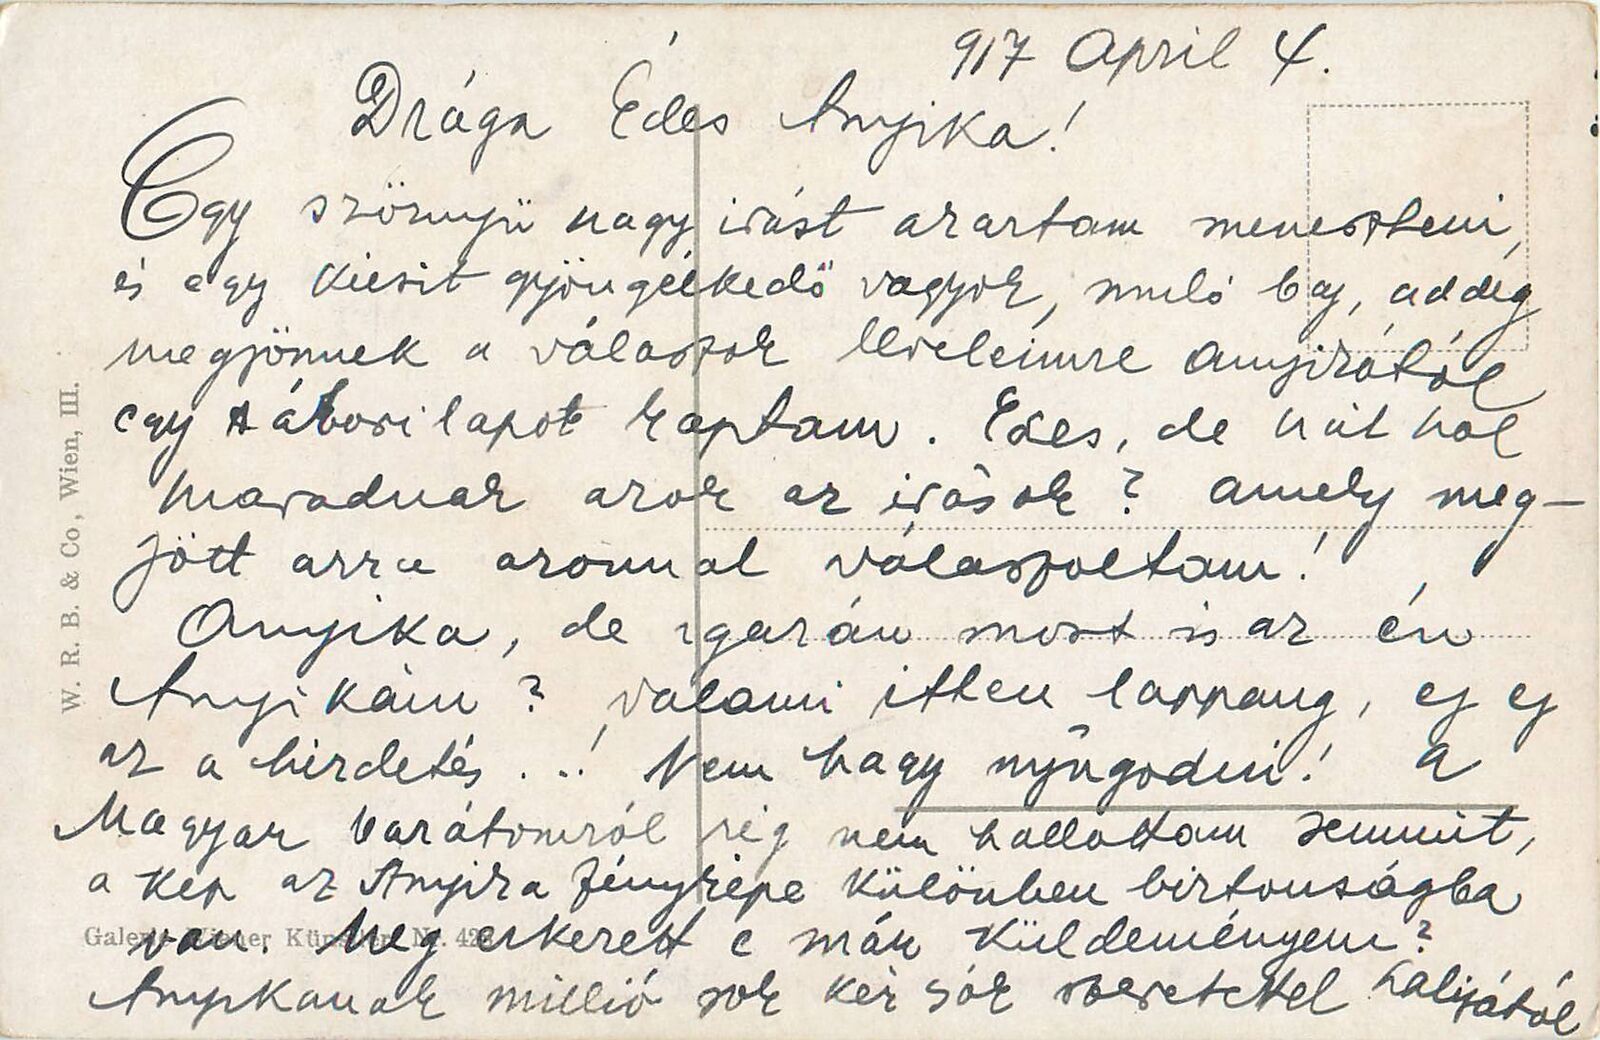 917 April 4.
Drága Édes Anyika!
Egy szörnyü nagy irást akartam meneszteni,
és egy kicsit gyöngélkedő vagyok, muló baj, addig
megjönnek a válaszok leveleimre Anyikától
egy tábori lapot kaptam. Édes, de hát hol
maradnak azok az irások? amely meg-
jött arra azonnal válaszoltam!
Anyika, de igazán most is az én
Anyikám? valami itten lappang, ej ej
az a hirdetés...! Nem hagy nyugodni! A
Magyar barátomról rég nem hallottam semmit,
a kép az Anyika fényképe különben biztonságba
van. Meg erkezett e már küldeményem?
Anyikanak millió sok kézcsók szeretettel
W. R. B. & Co, Wien, III.